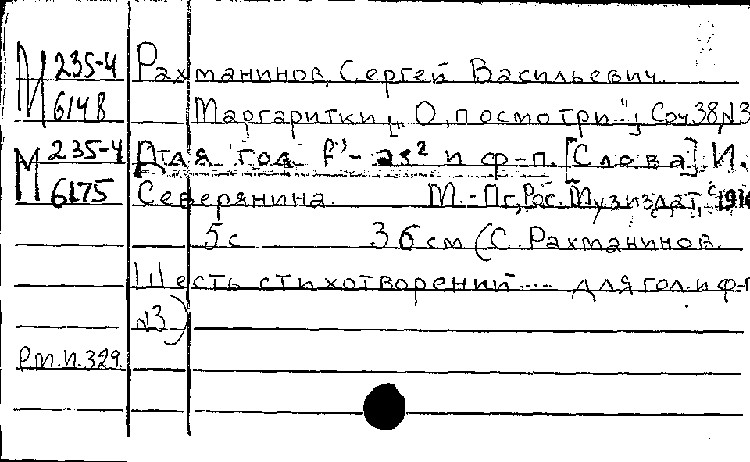 М 235-4 Рахманинов, Сергей Васильевич.
6148 Маргаритки [„О, посмотри"], Соч. 38, №3
М 235-4 Для гол. f'- as² и ф-п. [Слова] И.
6175 Северянина. М.-Пг, Рос. Музиздат, с1916
5 с 36 см (С. Рахманинов.
Шесть стихотворений ... для гол. и ф-п
№3)
Рт.п.329.